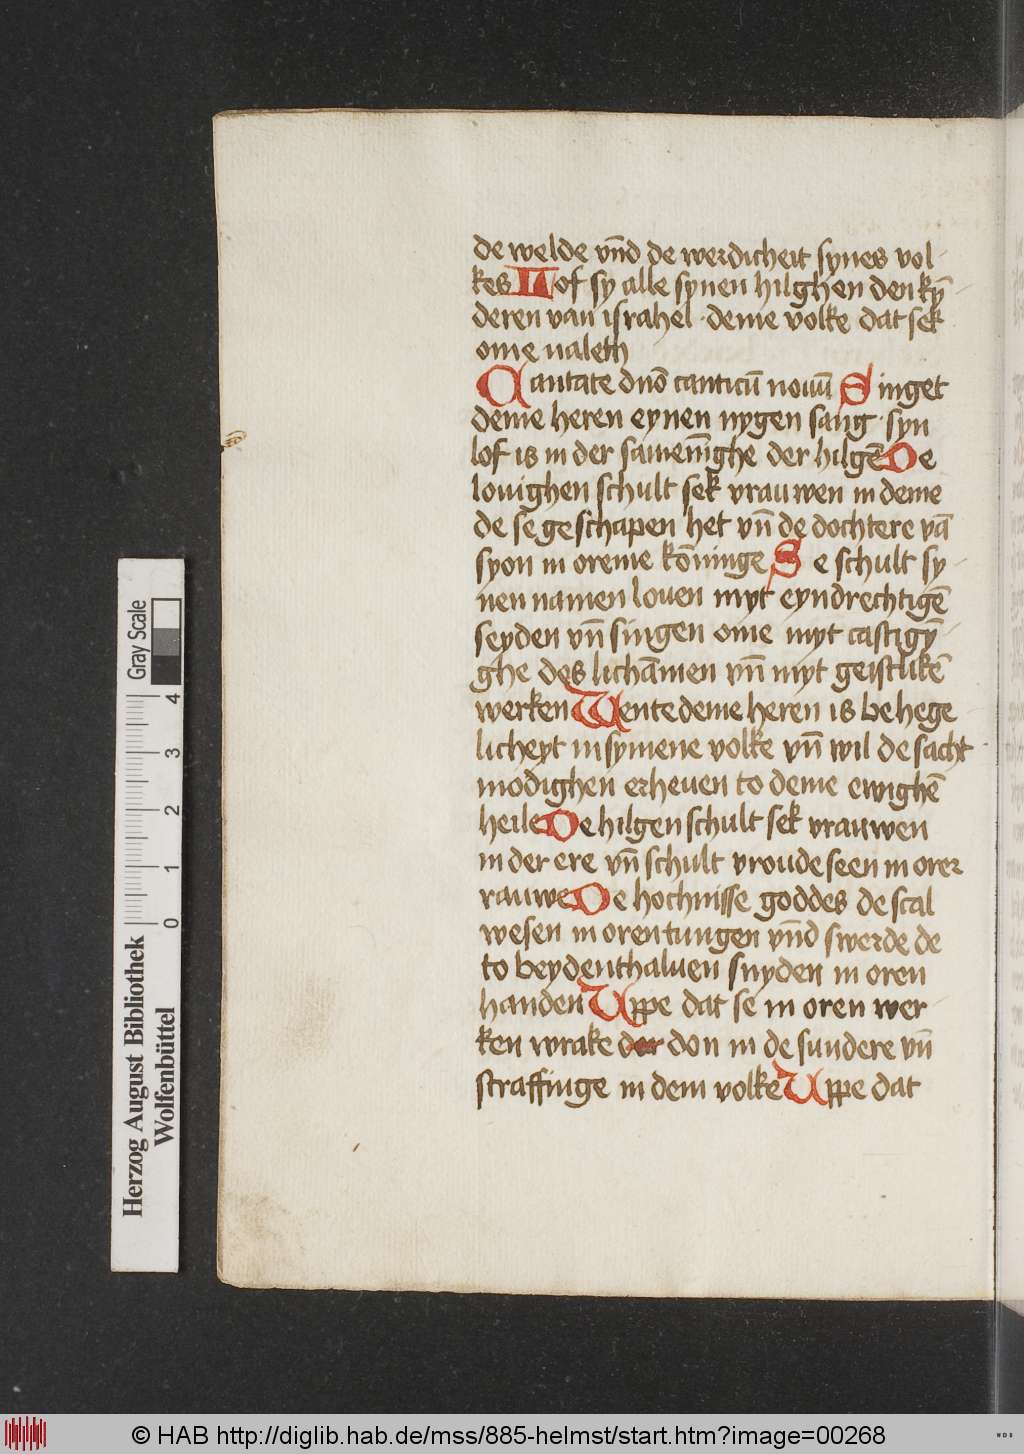 de welde vn̄d de werdicheit synes vol-
kes Lof sy alle synen hilghen den kȳ-
deren van israhel · deme volke dat sek
ome naleth
Cantate dn̄o canticū nouū Singet
deme heren eynen nygen sang · syn
lof is in der samen̄ighe der hilgē De
louighen schult sek vrauwen in deme
de se geschapen het vn̄ de dochtere vā
syon in oreme kōninge Se schult sy-
nen namen louen myt eyndrechtigē
seyden vn̄ singen ome myt castigȳ-
ghe des lichāmen vn̄ myt geistlikē
werken Wente deme heren is behege
licheyt in symene volke vn̄ wil de sacht
modighen erheuen to deme ewighē
heile De hilgen schult sek vrauwen
in der ere vn̄ schult vroude seen in orer
rauwe De hochnisse goddes de scal
wesen in oren tungen vn̄d swerde de
to beydenthaluen snyden in oren
handen Uppe dat se in oren wer
ken wrake der don in de sundere vn̄
straffinge in dem volke Uppe dat
Herzog August Bibliothek
Wolfenbüttel
0 1 2 3 4
Gray Scale
© HAB http://diglib.hab.de/mss/885-helmst/start.htm?image=00268